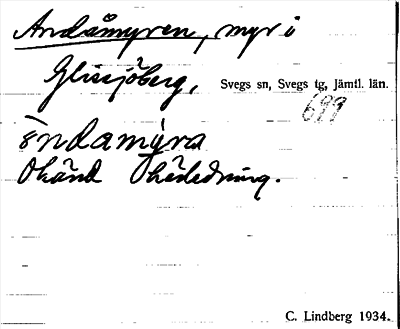 Andåmyren, myr i
Glissjöberg,
Svegs sn, Svegs tg, Jämtl. län.
699
èndamýra
Okänd härledning.
C. Lindberg 1934.